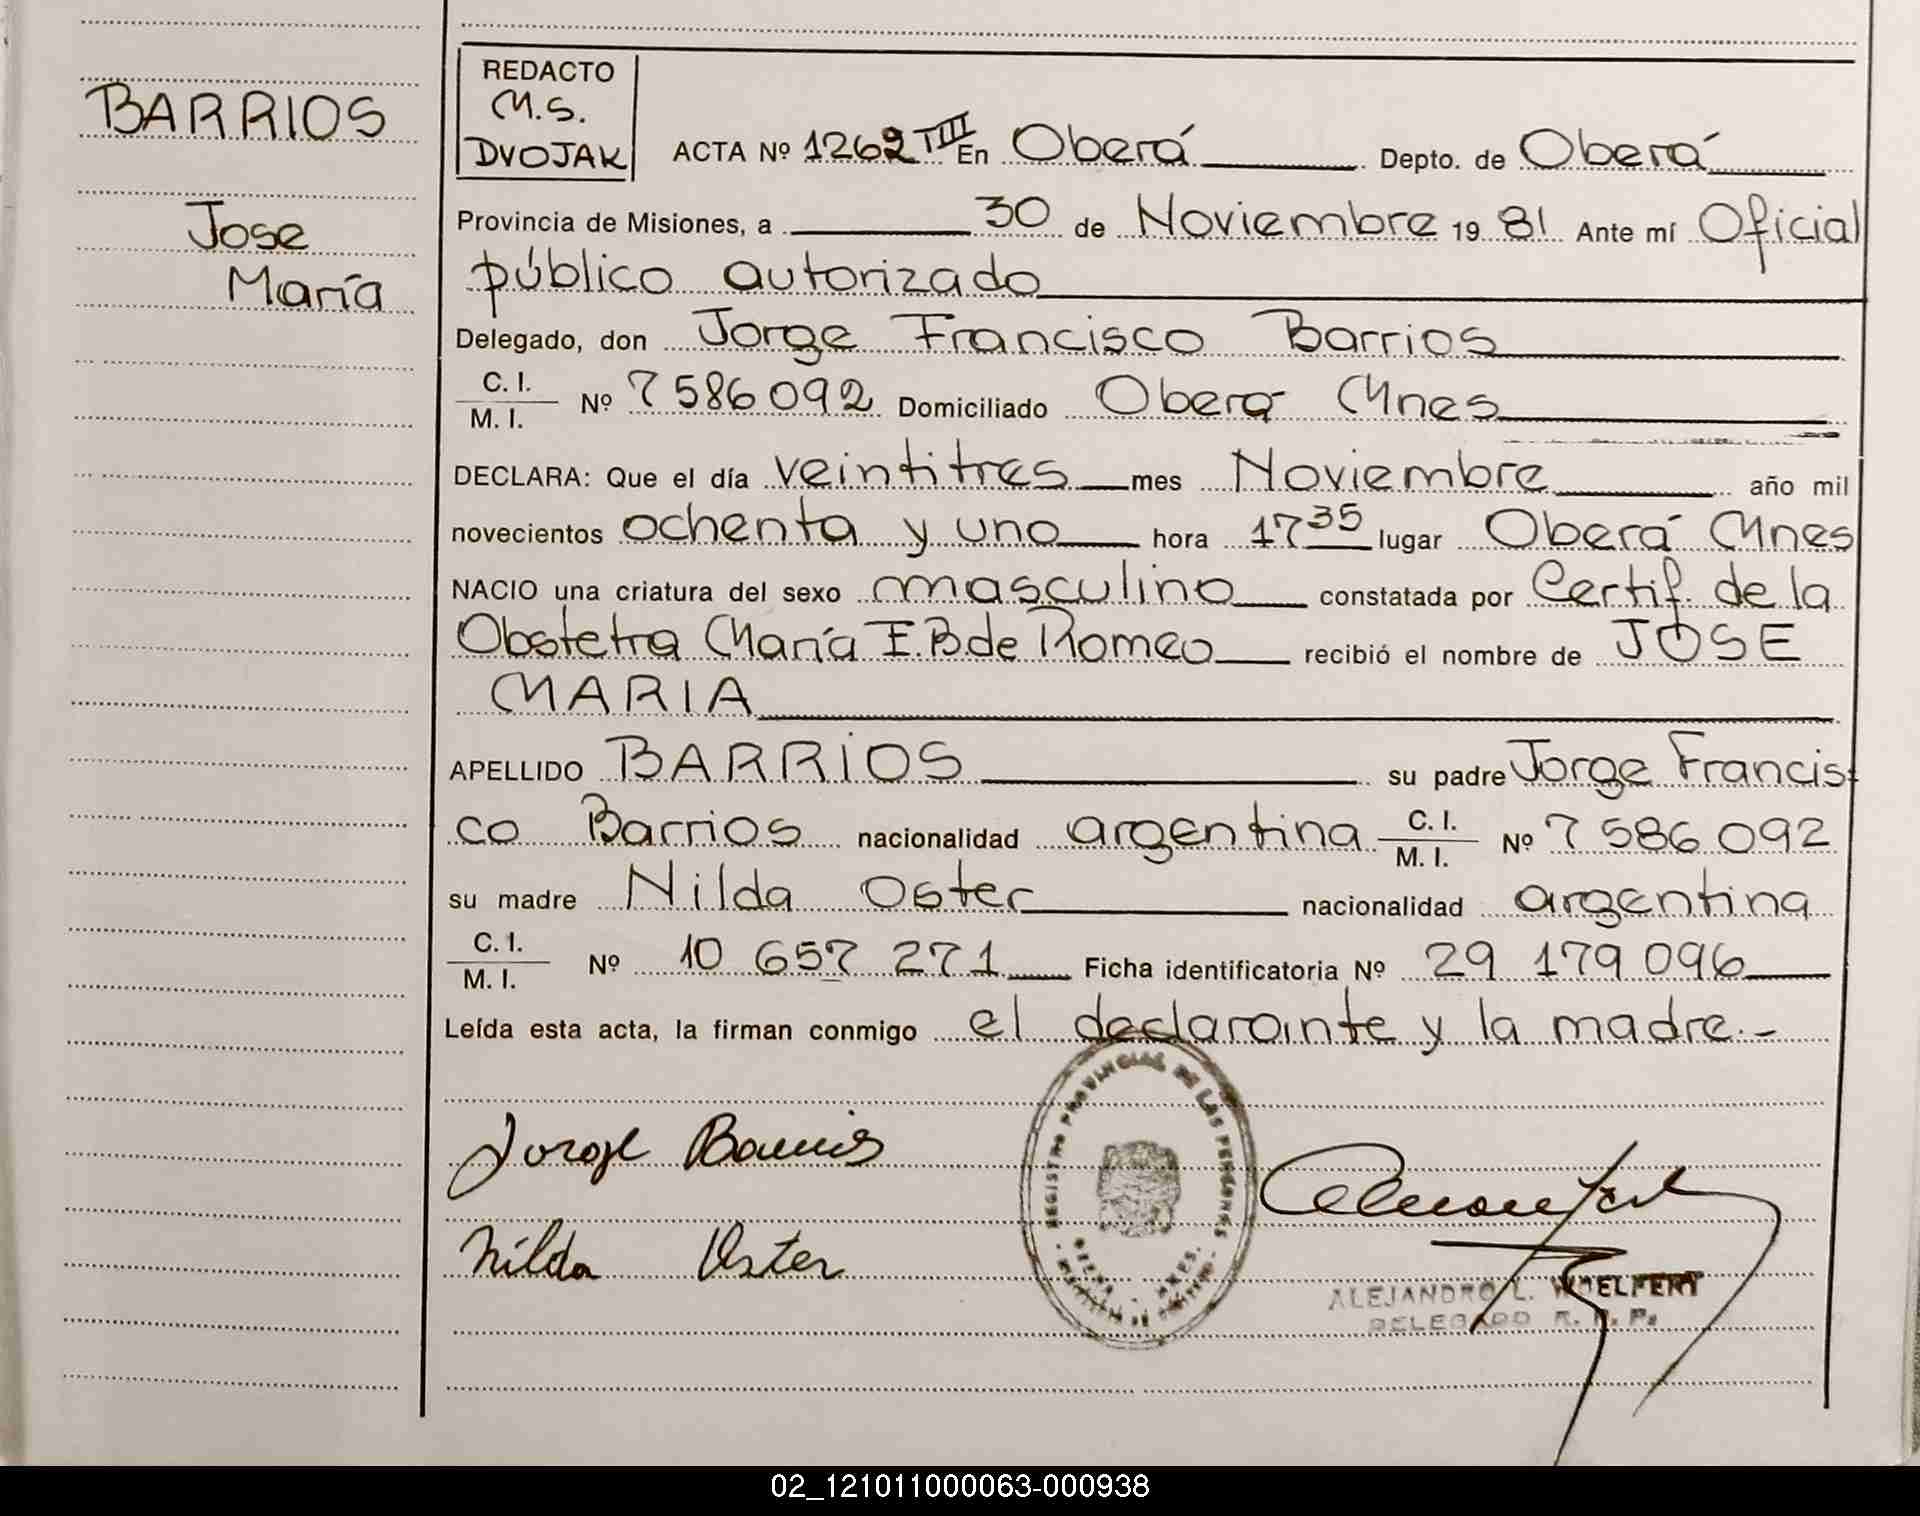 BARRIOS
Jose
María
REDACTO
M.S.
DVOJAK
ACTA Nº 1262 TIII En Oberá Depto. de Oberá
Provincia de Misiones, a 30 de Noviembre 1981 Ante mí Oficial
público autorizado
Delegado, don Jorge Francisco Barrios
C. I.
M. I. Nº 7 586 092 Domiciliado Oberá Mnes
DECLARA: Que el día veintitres mes Noviembre año mil
novecientos ochenta y uno hora 17 35 lugar Oberá Mnes
NACIO una criatura del sexo masculino constatada por Certif. de la
Obstetra María E. B. de Romeo recibió el nombre de JOSE
MARIA
APELLIDO BARRIOS su padre Jorge Francis
co Barrios nacionalidad argentina C. I. M. I. Nº 7 586 092
su madre Nilda Oster nacionalidad argentina
C. I.
M. I. Nº 10 657 271 Ficha identificatoria Nº 29 179 096
Leída esta acta, la firman conmigo el declarante y la madre.-
REGISTRO PROVINCIAL DE LAS PERSONAS
Jorge Barrios
Nilda Oster
ALEJANDRO L. WOELFERT
DELEGADO R. P. P.
02_121011000063-000938